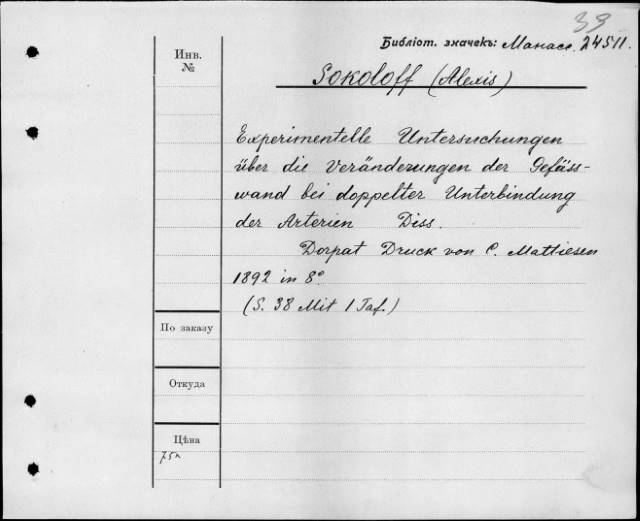 39
Библіот. значекъ: Манасс. 24511.
Инв.
№
Sokoloff (Alexis)
Experimentelle Untersuchungen
über die Veränderungen der Gefäss-
wand bei doppelter Unterbindung
der Arterien Diss.
Dorpat Druck von C. Mattiesen
1892 in 8°
(S. 38 Mit 1 Taf.)
По заказу
Откуда
Цѣна
75к